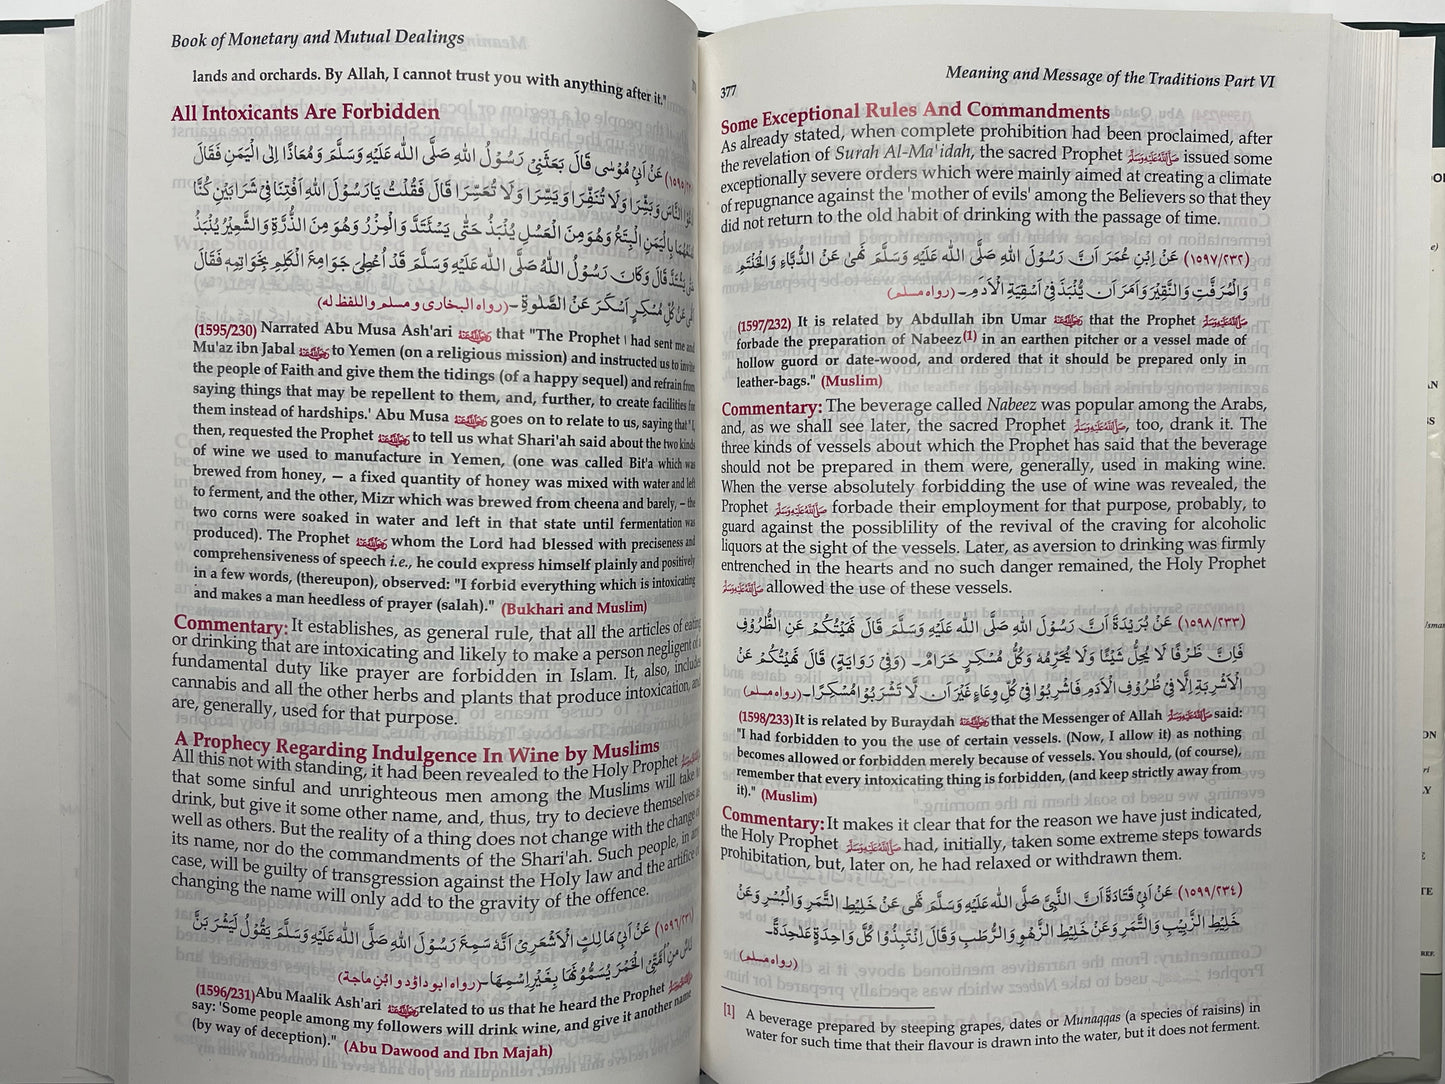 Book of Monetary and Mutual Dealings
lands and orchards. By Allah, I cannot trust you with anything after it."
All Intoxicants Are Forbidden
عَنْ اَبِیْ مُوْسٰی قَالَ بَعَثَنِیْ رَسُوْلُ اللهِ صَلَّی اللهُ عَلَیْهِ وَسَلَّمَ وَمُعَاذًا اِلَی الْیَمَنِ فَقَالَ
النَّاسَ وَبَشِّرَا وَلَا تُنَفِّرَا وَیَسِّرَا وَلَا تُعَسِّرَا قَالَ فَقُلْتُ یَارَسُوْلَ اللهِ اَفْتِنَا فِیْ شَرَابَیْنِ کُنَّا
بِالْیَمَنِ الْبِتْعُ وَهُوَ مِنَ الْعَسْلِ یُنْبَذُ حَتّٰی یَشْتَدَّ وَالْمِزْرُ وَهُوَ مِنَ الذُّرَةِ وَالشَّعِیْرُ یُنْبَذُ
قَالَ وَکَانَ رَسُوْلُ اللهُ صَلَّی اللهُ عَلَیْهِ وَسَلَّمَ قَدْ اُعْطِیَ جَوَامِعَ الْکَلِمِ بِخَوَاتِیْمِهِ فَقَالَ
عَنْ کُلِّ مُسْکِرٍ اَسْکَرَ عَنِ الصَّلٰوةِ ـ (رواه البخاری و مسلم واللفظ له)
(1595/230) Narrated Abu Musa Ash'ari that "The Prophet had sent me and
Mu'az ibn Jabal to Yemen (on a religious mission) and instructed us to invite
the people of Faith and give them the tidings (of a happy sequel) and refrain from
saying things that may be repellent to them, and, further, to create facilities for
them instead of hardships.' Abu Musa goes on to relate to us, saying that "I,
then, requested the Prophet to tell us what Shari'ah said about the two kinds
of wine we used to manufacture in Yemen, (one was called Bit'a which was
brewed from honey, — a fixed quantity of honey was mixed with water and left
to ferment, and the other, Mizr which was brewed from cheena and barely, – the
two corns were soaked in water and left in that state until fermentation was
produced). The Prophet whom the Lord had blessed with preciseness and
comprehensiveness of speech i.e., he could express himself plainly and positively
in a few words, (thereupon), observed: "I forbid everything which is intoxicating
and makes a man heedless of prayer (salah)." (Bukhari and Muslim)
Commentary: It establishes, as general rule, that all the articles of eating
or drinking that are intoxicating and likely to make a person negligent of a
fundamental duty like prayer are forbidden in Islam. It, also, includes
cannabis and all the other herbs and plants that produce intoxication, and
are, generally, used for that purpose.
A Prophecy Regarding Indulgence In Wine by Muslims
All this not with standing, it had been revealed to the Holy Prophet
that some sinful and unrighteous men among the Muslims will take to
drink, but give it some other name, and, thus, try to decieve themselves as
well as others. But the reality of a thing does not change with the change of
its name, nor do the commandments of the Shari'ah. Such people, in any
case, will be guilty of transgression against the Holy law and the artifice of
changing the name will only add to the gravity of the offence.
(١٥٩٦/٢٣١) عَنْ اَبِیْ مَالِكِ الْاَشْعَرِیْ اَنَّهٗ سَمِعَ رَسُوْلَ اللهِ صَلَّی اللهُ عَلَیْهِ وَسَلَّمَ یَقُوْلُ لَیَشْرَبَنَّ
نَاسٌ مِنْ اُمَّتِی الْخَمْرَ یُسَمُّوْنَهَا بِغَیْرِ اِسْمِهَا ـ (رواه ابوداؤد و ابْنِ ماجة)
(1596/231) Abu Maalik Ash'ari related to us that he heard the Prophet
say: 'Some people among my followers will drink wine, and give it another name
(by way of deception)." (Abu Dawood and Ibn Majah)
377
Meaning and Message of the Traditions Part VI
Some Exceptional Rules And Commandments
As already stated, when complete prohibition had been proclaimed, after
the revelation of Surah Al-Ma'idah, the sacred Prophet ﷺ issued some
exceptionally severe orders which were mainly aimed at creating a climate
of repugnance against the 'mother of evils' among the Believers so that they
did not return to the old habit of drinking with the passage of time.
(١٥٩٧/٢٣٢) عَنْ اِبْنِ عُمَرَ اَنَّ رَسُوْلَ اللهِ صَلَّی اللهُ عَلَیْهِ وَسَلَّمَ نَهٰی عَنْ الدُّبَّاءِ وَالْحَنْتَمِ
وَالْمُزَفَّتِ وَالنَّقِیْرِ وَاَمَرَ اَنْ یُنْبَذَ فِیْ اَسْقِیَةِ الْاَدَمِ ـ (رواه مسلم)
(1597/232) It is related by Abdullah ibn Umar that the Prophet ﷺ
forbade the preparation of Nabeez(1) in an earthen pitcher or a vessel made of
hollow guord or date-wood, and ordered that it should be prepared only in
leather-bags." (Muslim)
Commentary: The beverage called Nabeez was popular among the Arabs,
and, as we shall see later, the sacred Prophet ﷺ, too, drank it. The
three kinds of vessels about which the Prophet has said that the beverage
should not be prepared in them were, generally, used in making wine.
When the verse absolutely forbidding the use of wine was revealed, the
Prophet ﷺ forbade their employment for that purpose, probably, to
guard against the possiblility of the revival of the craving for alcoholic
liquors at the sight of the vessels. Later, as aversion to drinking was firmly
entrenched in the hearts and no such danger remained, the Holy Prophet
ﷺ allowed the use of these vessels.
(١٥٩٨/٢٣٣) عَنْ بُرَیْدَةَ اَنَّ رَسُوْلَ اللهِ صَلَّی اللهُ عَلَیْهِ وَسَلَّمَ قَالَ نَهَیْتُکُمْ عَنِ الظُّرُوْفِ
فَاِنَّ ظَرْفًا لَا یُحِلُّ شَیْئًا وَلَا یُحَرِّمُهٗ وَکُلُّ مُسْکِرٍ حَرَامٌ ـ (وَفِیْ رِوَایَةٍ) قَالَ نَهَیْتُکُمْ عَنْ
الْاَشْرِبَةِ اِلَّا فِیْ ظُرُوْفِ الْاَدِمِ فَاشْرَبُوْا فِیْ کُلِّ وِعَاءٍ غَیْرَ اَنْ لَّا تَشْرَبُوْا مُسْکِرًا ـ (رواه مسلم)
(1598/233) It is related by Buraydah that the Messenger of Allah ﷺ said:
"I had forbidden to you the use of certain vessels. (Now, I allow it) as nothing
becomes allowed or forbidden merely because of vessels. You should, (of course),
remember that every intoxicating thing is forbidden, (and keep strictly away from
it)." (Muslim)
Commentary: It makes it clear that for the reason we have just indicated,
the Holy Prophet ﷺ had, initially, taken some extreme steps towards
prohibitation, but, later on, he had relaxed or withdrawn them.
(١٥٩٩/٢٣٤) عَنْ اَبِیْ قَتَادَةَ اَنَّ النَّبِیَّ صَلَّی اللهُ عَلَیْهِ وَسَلَّمَ نَهٰی عَنْ خَلِیْطِ التَّمْرِ وَالْبُسْرِ وَعَنْ
خَلِیْطِ الزَّبِیْبِ وَالتَّمْرِ وَعَنْ خَلِیْطِ الزَّهْوِ وَالرُّطَبِ وَقَالَ اِنْتَبِذُوْا کُلَّ وَاحِدَةٍ عَلٰحِدَةٍ ـ
(رواه مسلم)
[1] A beverage prepared by steeping grapes, dates or Munaqqas (a species of raisins) in
water for such time that their flavour is drawn into the water, but it does not ferment.